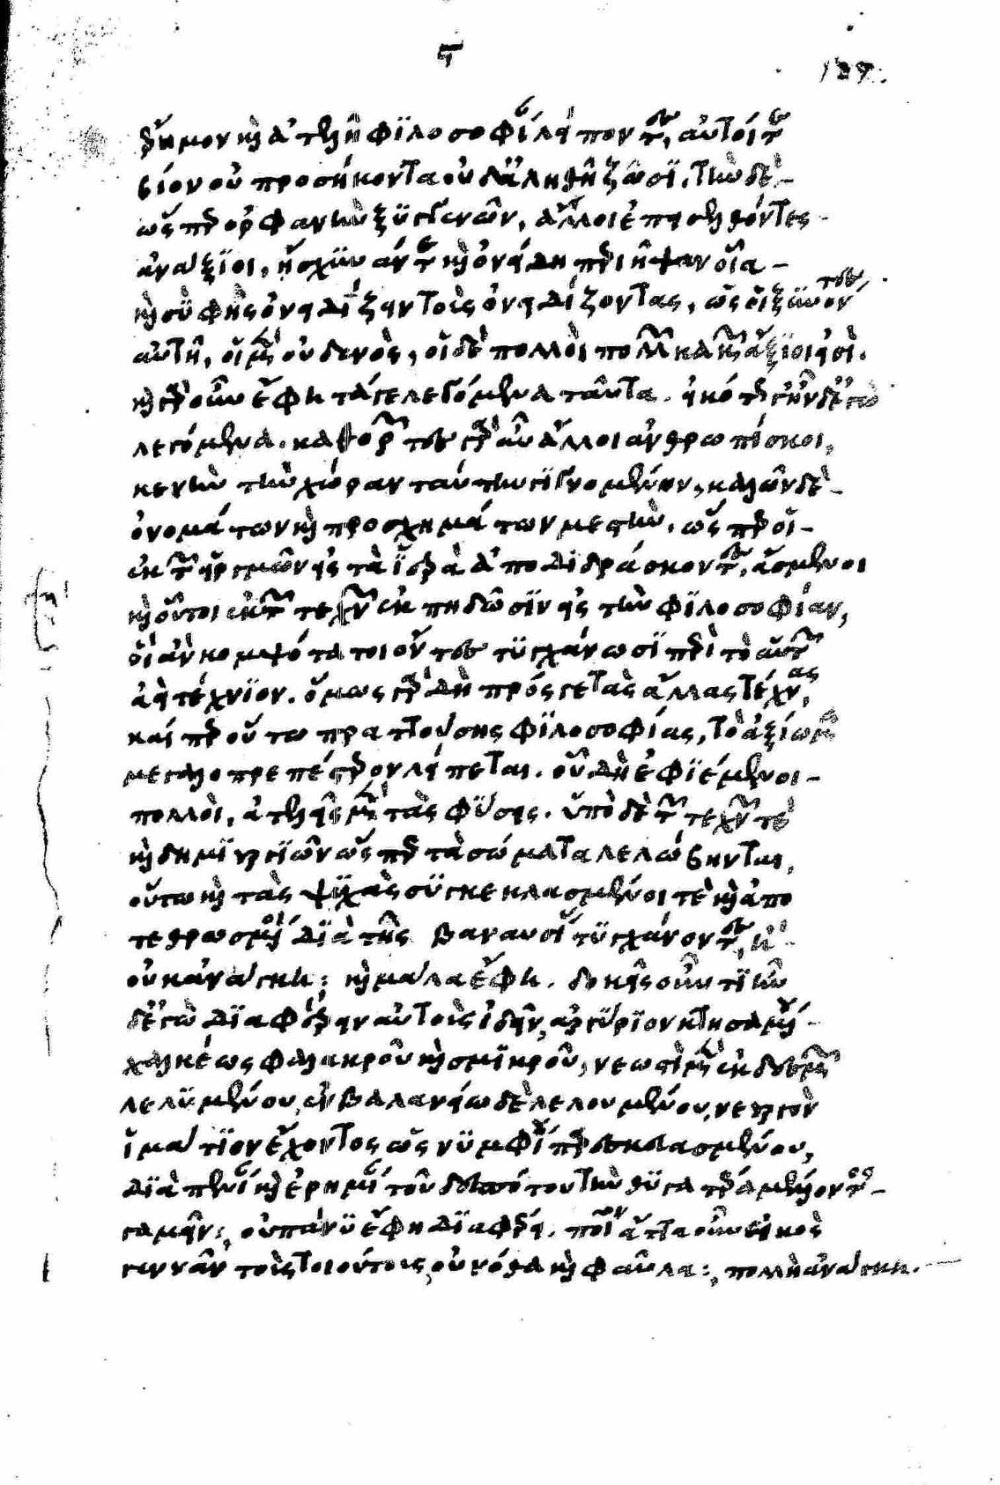 ς 127.
ἔρημον καὶ ἀτελῆ φιλοσοφίαν λείποντες, αὐτοί τε
βίον οὐ προσήκοντα οὐδ' ἀληθῆ ζῶσι. τὴν δὲ
ὥσπερ ὀρφανὴν ξυγγενῶν, ἄλλοι ἐπεισελθόντες
ἀνάξιοι, ᾔσχυνάν τε καὶ ὀνείδη περιῆψαν οἷα
καὶ σὺ φῂς ὀνειδίζειν τοὺς ὀνειδίζοντας, ὡς οἱ ξυνόντες
αὐτῇ, οἱ μὲν οὐδενὸς, οἱ δὲ πολλοὶ πολλῶν κακῶν ἄξιοι εἰσὶ.
καὶ γὰρ οὖν ἔφη τά γε λεγόμενα ταῦτα. εἰκότως γε ἦν δ' ἐγὼ
λεγόμενα. καθορῶντες γὰρ ἄλλοι ἀνθρωπίσκοι,
κενὴν τὴν χώραν ταύτην γιγνομένην, καλῶν δὲ
ὀνομάτων καὶ προσχημάτων μεστὴν. ὥσπερ οἱ
ἐκ τῶν εἱργμῶν εἰς τὰ ἱερὰ ἀποδιδράσκοντες, ἄσμενοι
καὶ οὗτοι ἐκ τῶν τεχνῶν ἐκπηδῶσιν εἰς τὴν φιλοσοφίαν,
οἳ ἂν κομψότατοι ὄντες τυγχάνωσι περὶ τὸ αὑτῶν
τέχνιον. ὅμως γὰρ δὴ πρός γε τὰς ἄλλας τέχνας,
καίπερ οὕτω πραττούσης φιλοσοφίας, τὸ ἀξίωμα
μεγαλοπρεπέστερον λείπεται. οὗ δὴ ἐφιέμενοι
πολλοὶ, ἀτελεῖς μὲν τὰς φύσεις. ὑπὸ δὲ τῶν τεχνῶν τε
καὶ δημιουργιῶν ὥσπερ τὰ σώματα λελώβηνται,
οὕτω καὶ τὰς ψυχὰς συγκεκλασμένοι τε καὶ ἀπο
τεθρυμμένοι διὰ τὰς βαναυσίας τυγχάνουσιν, ἢ
οὐκ ἀνάγκη; καὶ μάλα ἔφη. δοκεῖς οὖν τι ἦν
δ' ἐγὼ διαφέρειν αὐτοὺς ἰδεῖν, ἀργύριον κτησαμένου
χαλκέως φαλακροῦ καὶ σμικροῦ, νεωστὶ μὲν ἐκ δεσμῶν
λελυμένου, ἐν βαλανείῳ δὲ λελουμένου, νεουργὸν
ἱμάτιον ἔχοντος ὡς νυμφίου παρεσκευασμένου,
διὰ πενίαν καὶ ἐρημίαν τοῦ δεσπότου τὴν θυγατέρα μέλλοντος
γαμεῖν; οὐ πάνυ ἔφη διαφέρει. ποῖ' ἄττα οὖν εἰκὸς
γεννᾶν τοὺς τοιούτους, οὐ νόθα καὶ φαῦλα; πολλὴ ἀνάγκη.